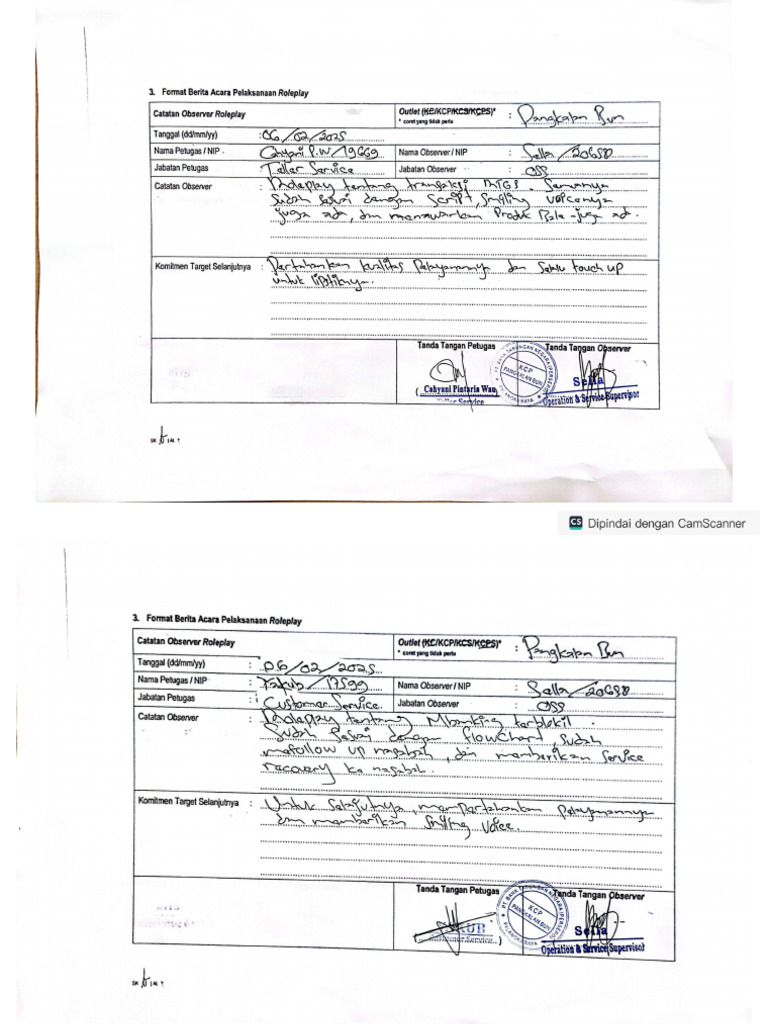 3. Format Berita Acara Pelaksanaan Roleplay
Catatan Observer Roleplay
Outlet (KC/KCP/KCS/KCPS)* : Pangkalan Bun
* coret yang tidak perlu
Tanggal (dd/mm/yy) : 06/02/2025
Nama Petugas / NIP : Cahyani P.W / 19669
Nama Observer / NIP : Sella / 20658
Jabatan Petugas : Teller Service
Jabatan Observer : OSS
Catatan Observer : Roleplay tentang transaksi RTGS. Semuanya
sudah sesuai dengan Script, Smiling voicenya
juga ada, dan menawarkan Produk Bale juga ad.
Komitmen Target Selanjutnya : Pertahankan kualitas Pelayanannya dan Selalu touch up
untuk lipstiknya.
Tanda Tangan Petugas
Tanda Tangan Observer
KCP
PANGKALAN BUN
Cahyani Pintaria Wau
Teller Service
Sella
Operation & Service Supervisor
CS Dipindai dengan CamScanner
3. Format Berita Acara Pelaksanaan Roleplay
Catatan Observer Roleplay
Outlet (KC/KCP/KCS/KCPS)* : Pangkalan Bun
* coret yang tidak perlu
Tanggal (dd/mm/yy) : 06/02/2025
Nama Petugas / NIP : Yakub / 17599
Nama Observer / NIP : Sella / 20658
Jabatan Petugas : Customer Service
Jabatan Observer : OSS
Catatan Observer : Roleplay tentang Mbanking terblokil.
Sudah Sesuai dengan flowchart sudah
mefollow up nasabah, dan memberikan Service
recovery ke nasabah.
Komitmen Target Selanjutnya : Untuk Selajutnya, mempertahankan Pelayanannya
dan memberikan Smiling Voice.
Tanda Tangan Petugas
Tanda Tangan Observer
KCP
PANGKALAN BUN
Customer Service
Sella
Operation & Service Supervisor